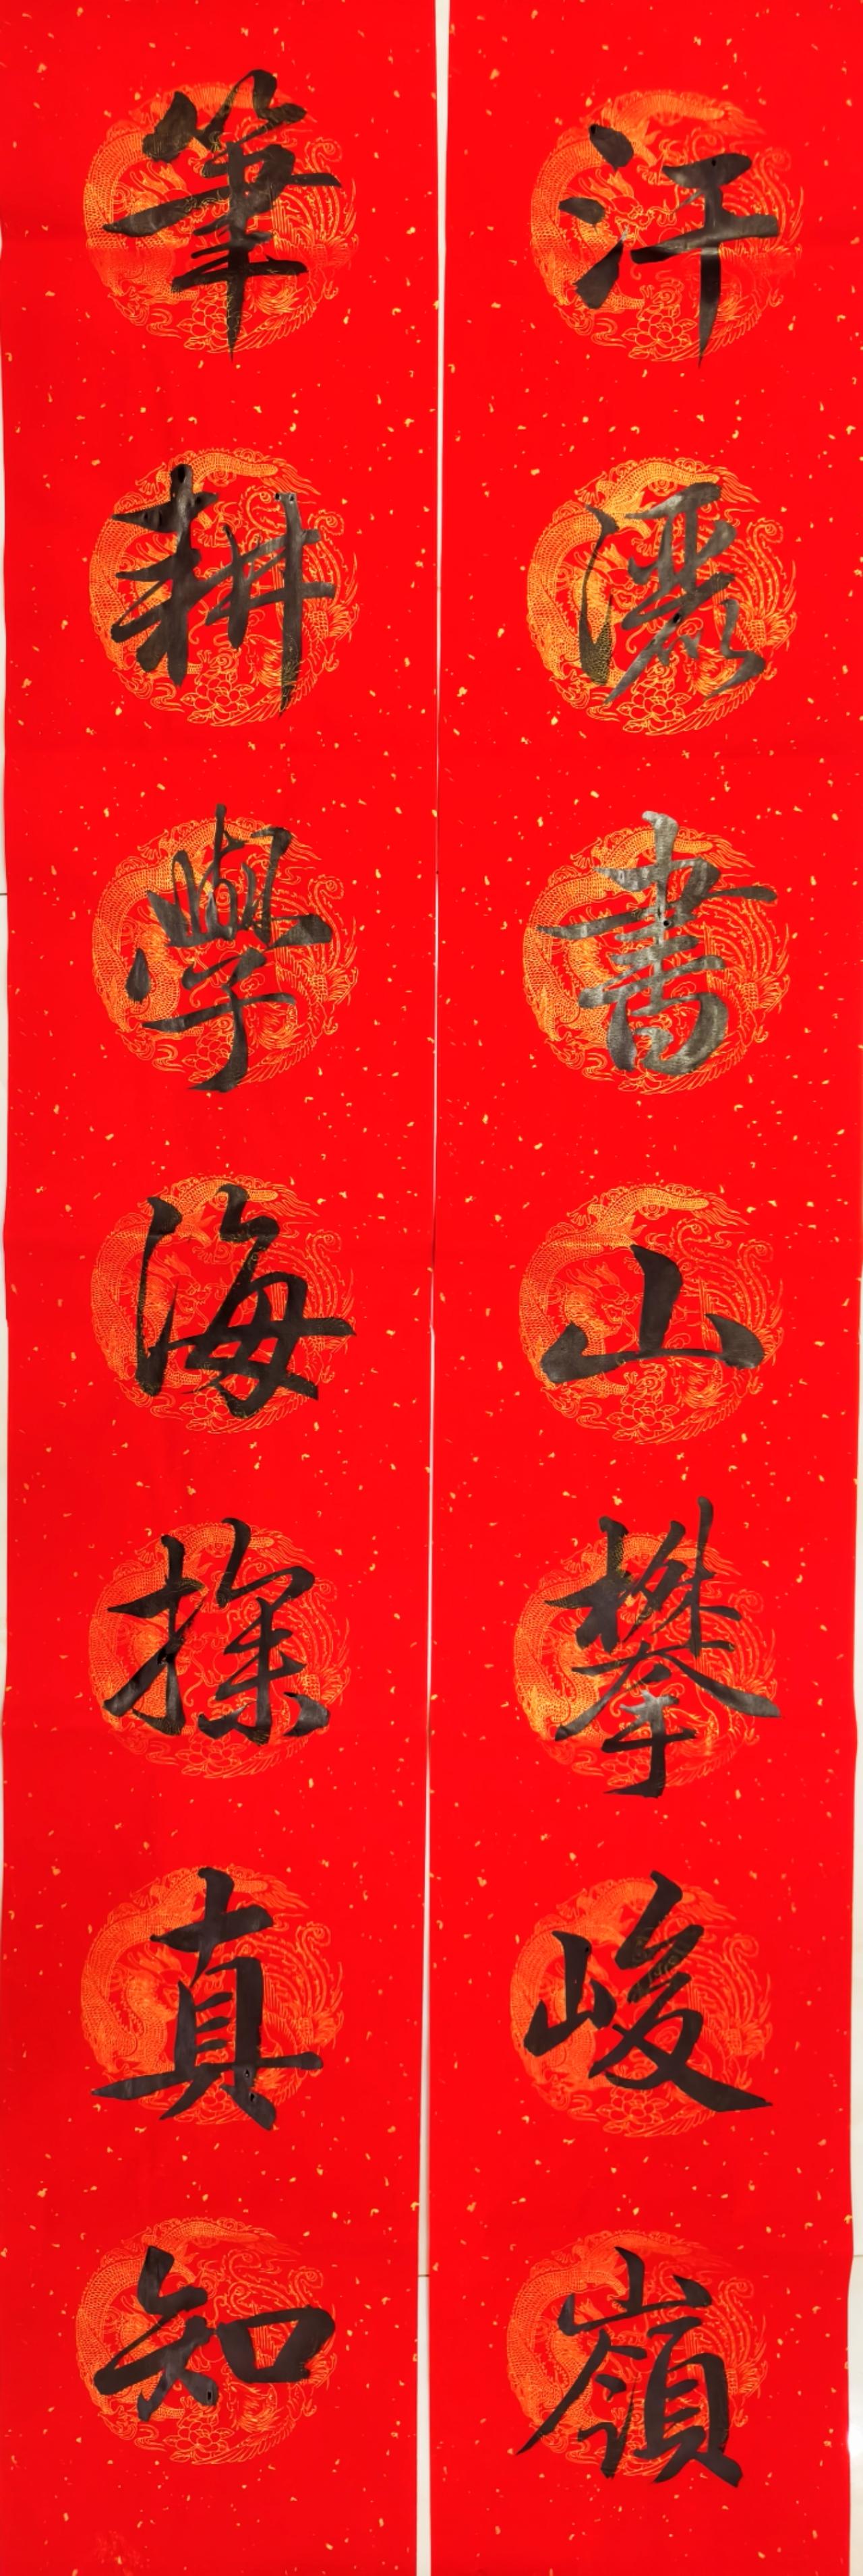 汗灑書山攀峻嶺
筆耕學海探真知